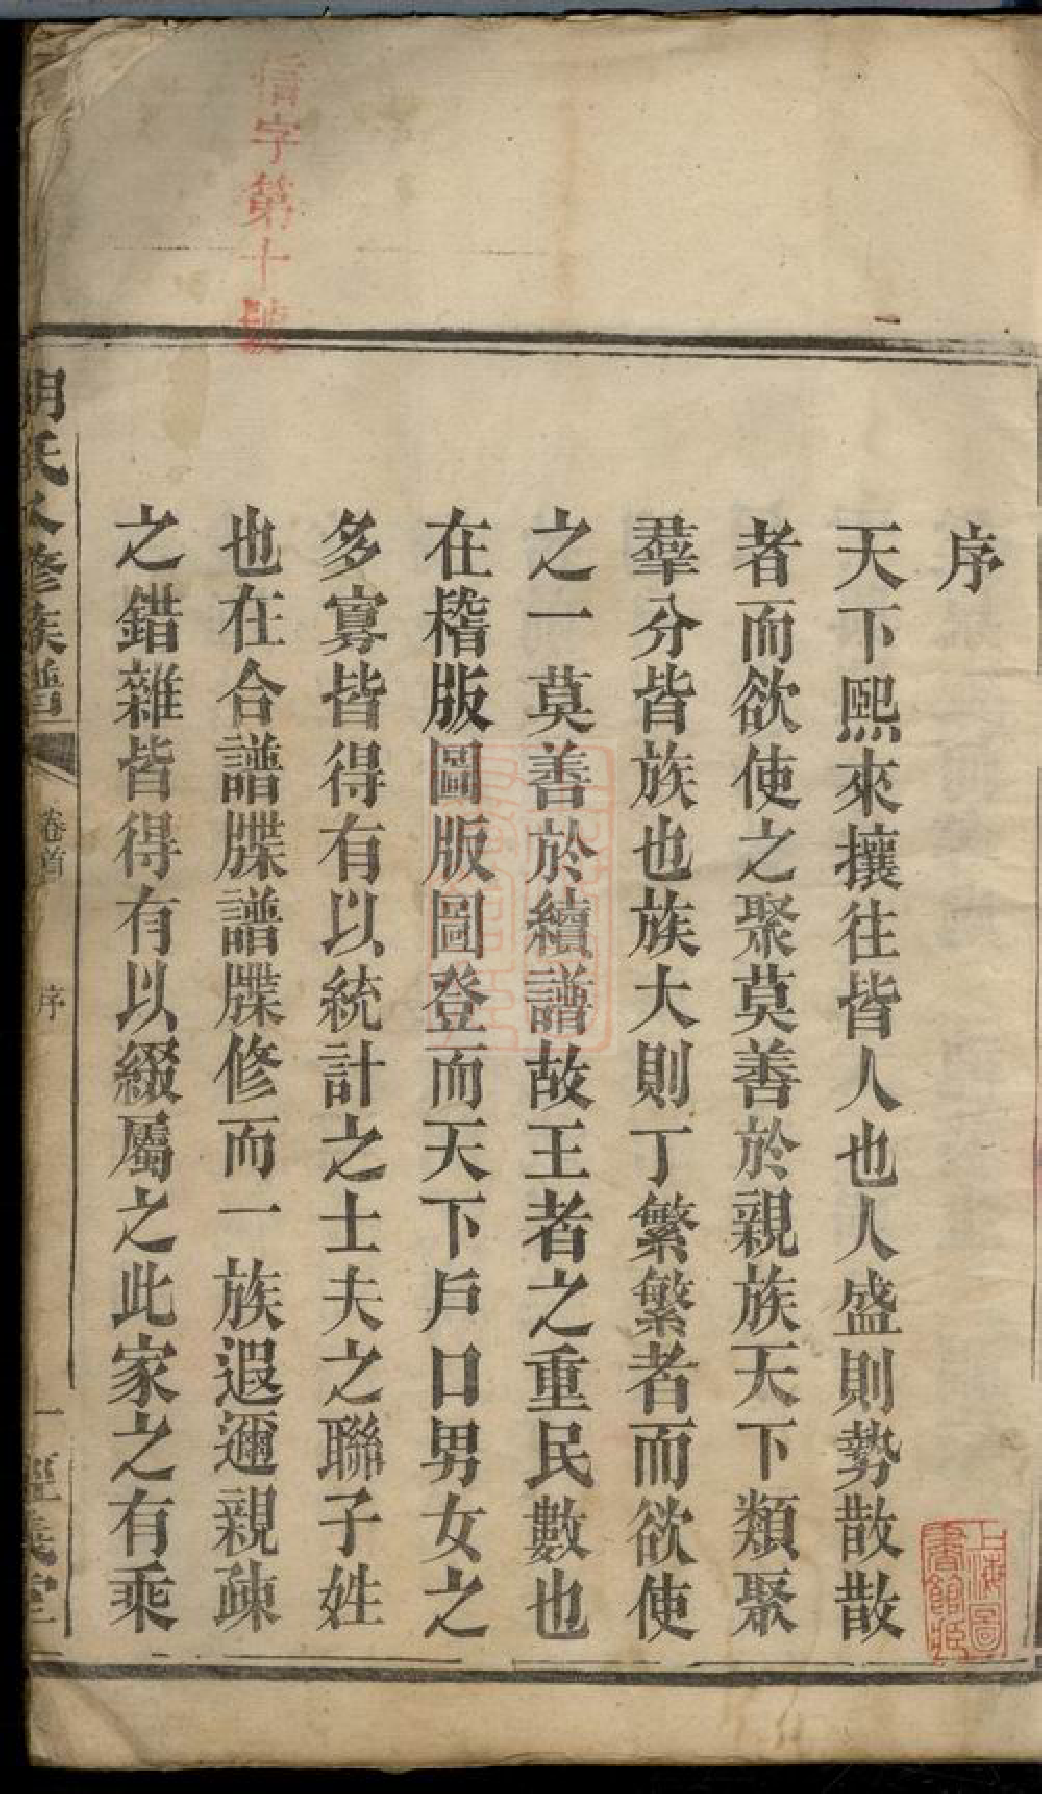 信字第十號
序
天下熙來攘往皆人也人盛則勢散散
者而欲使之聚莫善於親族天下類聚
羣分皆族也族大則丁繁繁者而欲使
之一莫善於續譜故王者之重民數也
在稽版圖版圖登而天下戶口男女之
多寡皆得有以統計之士夫之聯子姓
也在合譜牒譜牒修而一族遐邇親疎
之錯雜皆得有以綴屬之此家之有乘
胡氏 修族譜
卷首
序
一
經義堂
上海圖書館藏